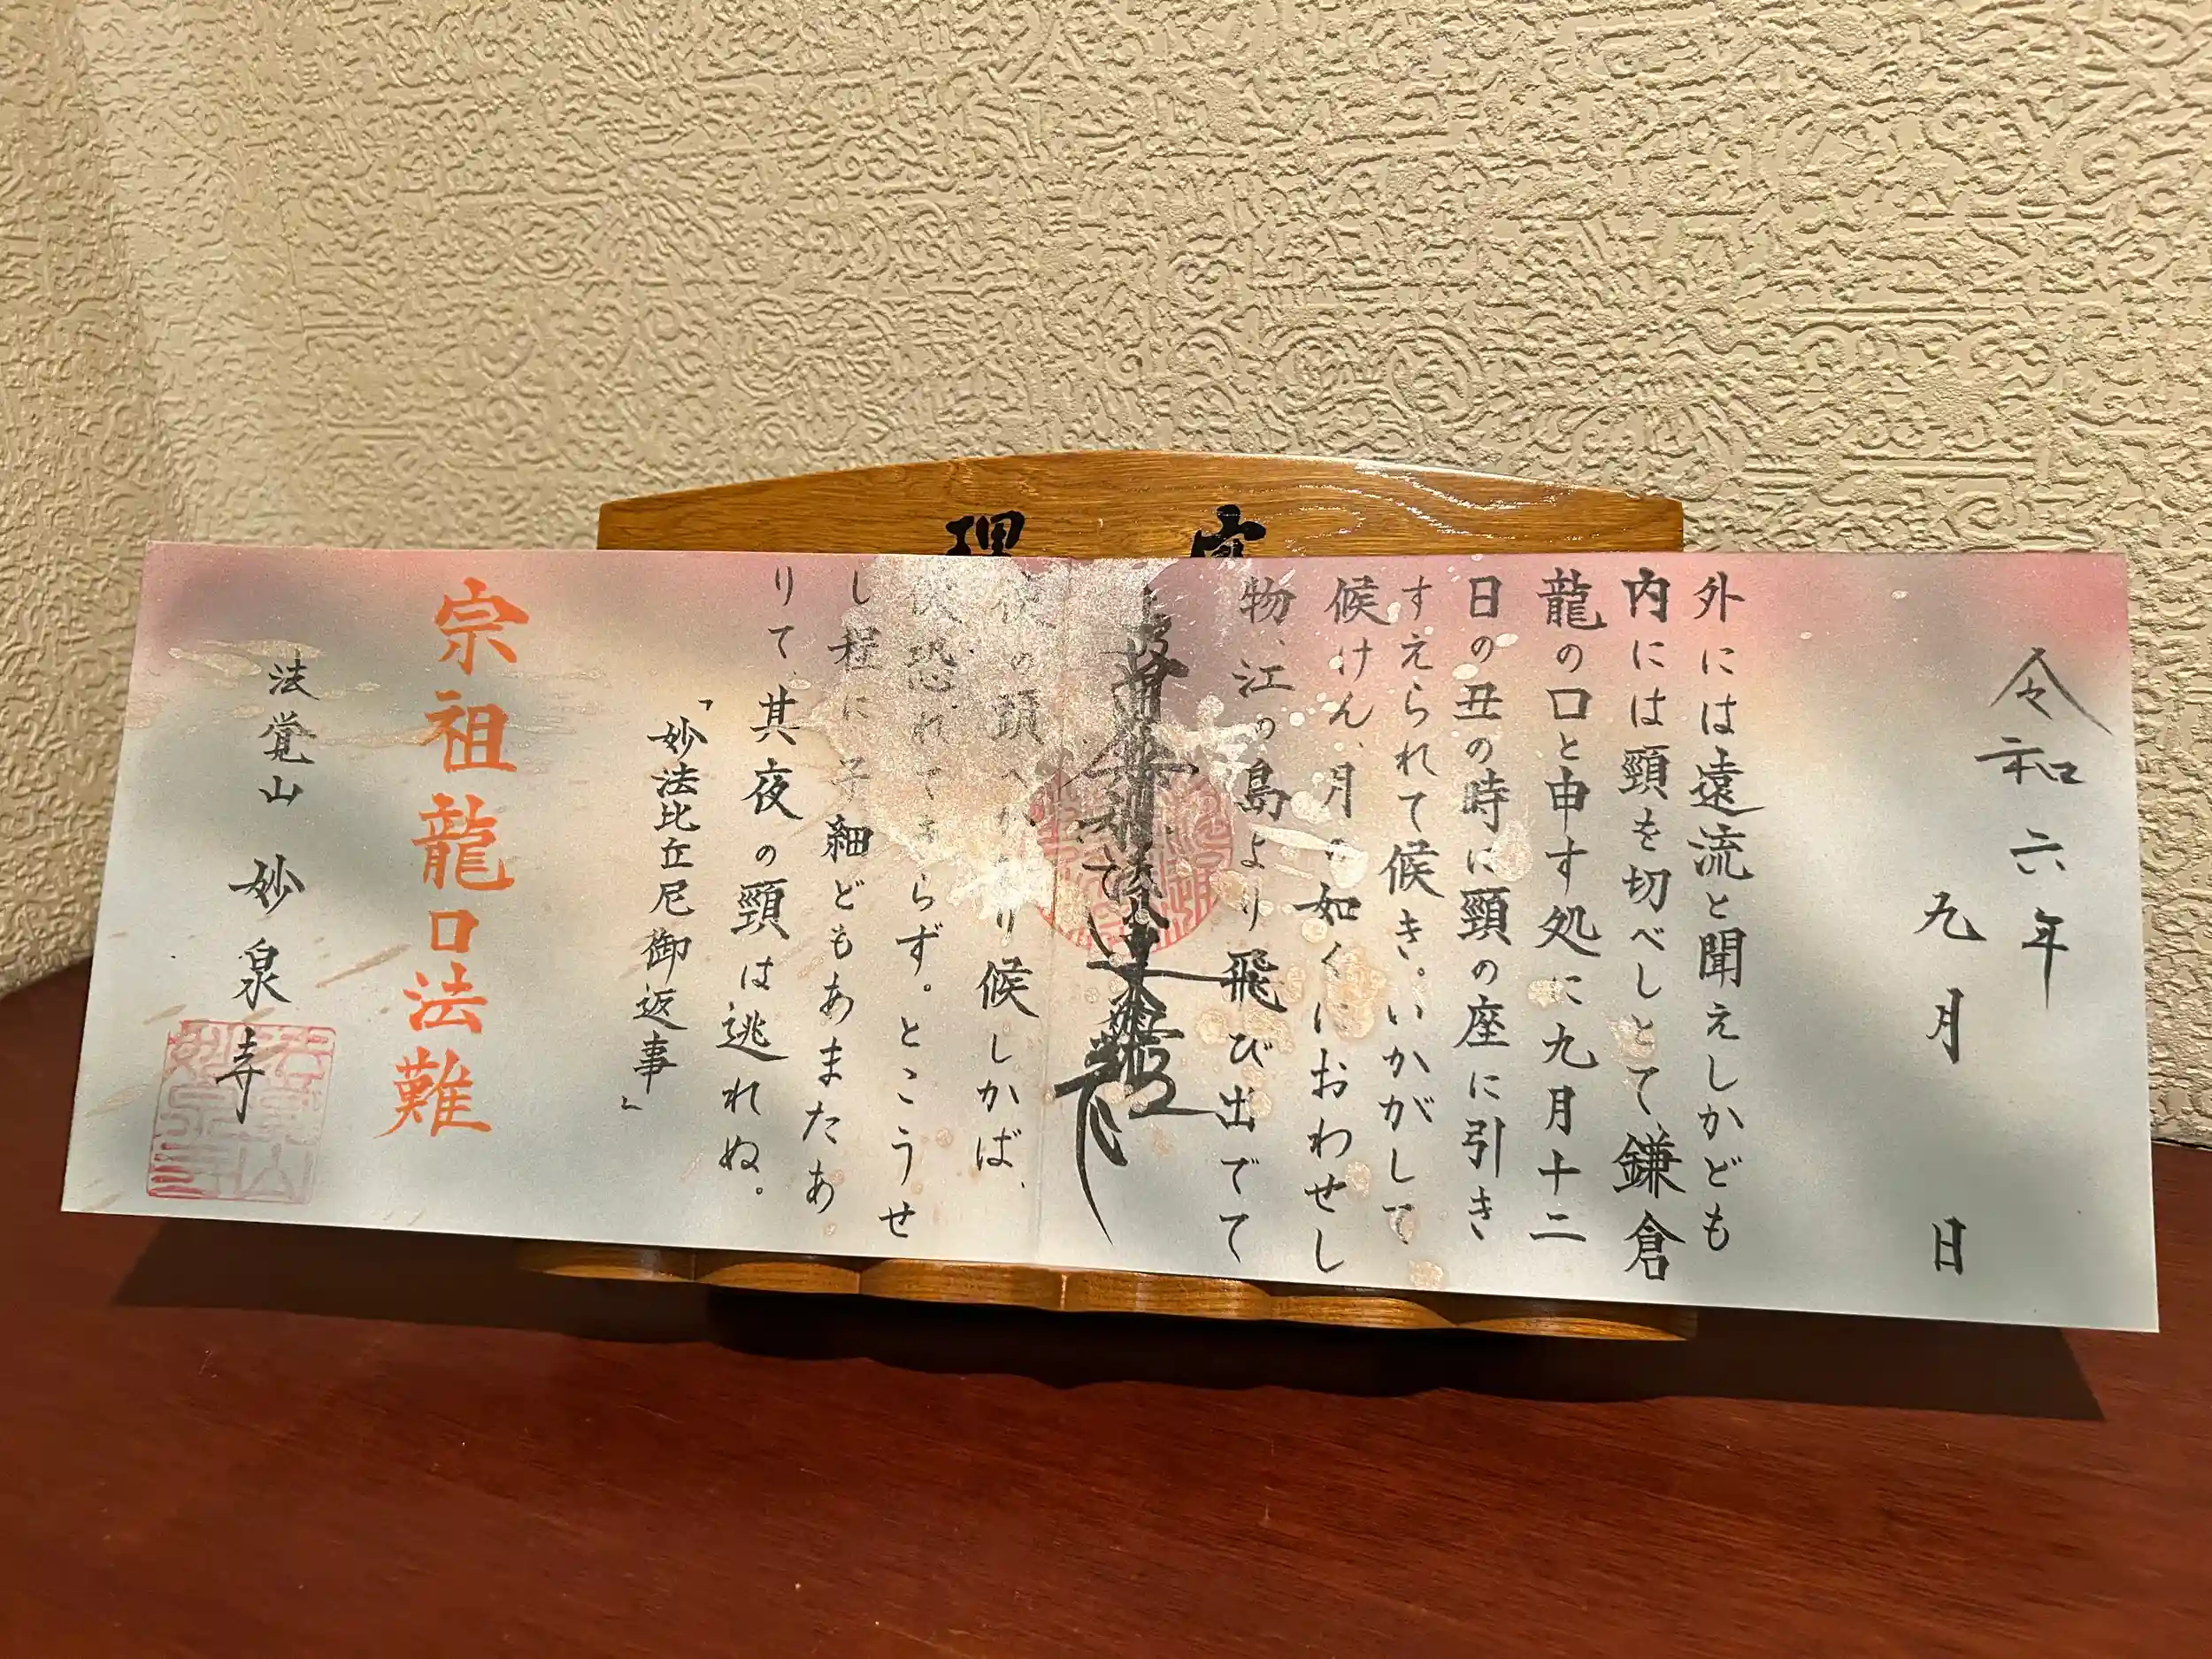 令和六年
九月 日
外には遠流と聞えしかども
内には頸を切べしとて、鎌倉
龍の口と申す処に九月十二
日の丑の時に頸の座に引き
すえられて候き。いかがして
候けん、月の如くにおわせし
物、江の島より飛び出でて
の頭へかかり候しかば、
恐れてきらず。とこうせ
し程に子細どもあまたあ
りて、其夜の頸は逃れぬ。
「妙法比丘尼御返事」
宗祖龍口法難
法覚山 妙泉寺